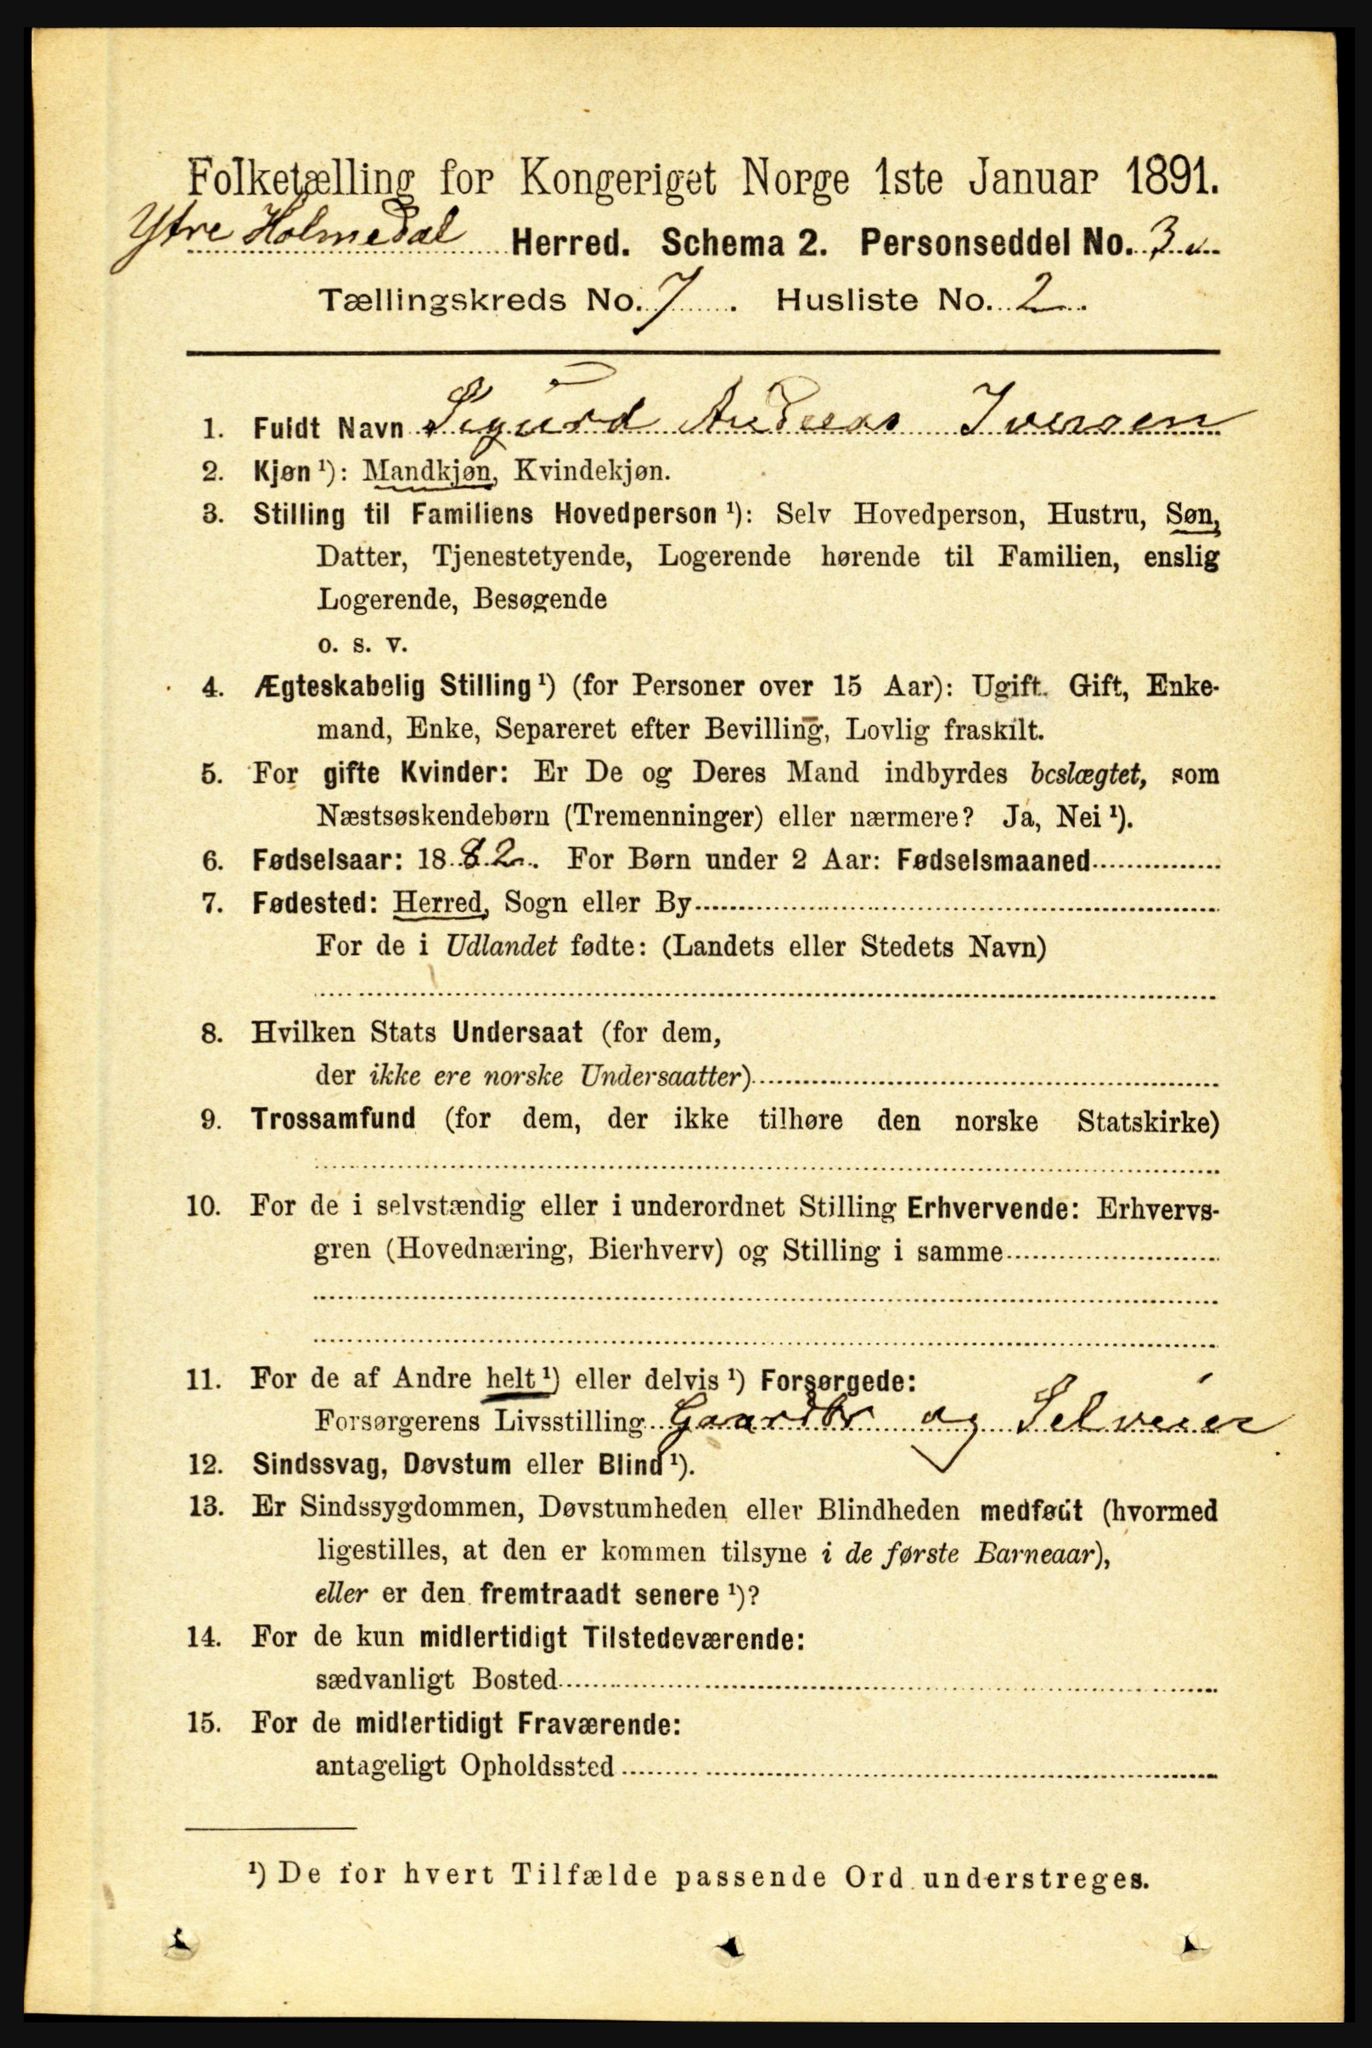 Folketælling for Kongeriget Norge 1ste Januar 1891.
Ytre Holmedal Herred. Schema 2. Personseddel No. 3
Tællingskreds No. 7. Husliste No. 2.
1. Fuldt Navn Sigurd Andreas Iversen
2. Kjøn ¹): Mandkjøn, Kvindekjøn.
3. Stilling til Familiens Hovedperson ¹): Selv Hovedperson, Hustru, Søn,
Datter, Tjenestetyende, Logerende hørende til Familien, enslig
Logerende, Besøgende
o. s. v.
4. Ægteskabelig Stilling ¹) (for Personer over 15 Aar): Ugift. Gift, Enke-
mand, Enke, Separeret efter Bevilling, Lovlig fraskilt.
5. For gifte Kvinder: Er De og Deres Mand indbyrdes beslægtet, som
Næstsøskendebørn (Tremenninger) eller nærmere? Ja, Nei ¹).
6. Fødselsaar: 1882. For Børn under 2 Aar: Fødselsmaaned
7. Fødested: Herred, Sogn eller By
For de i Udlandet fødte: (Landets eller Stedets Navn)
8. Hvilken Stats Undersaat (for dem,
der ikke ere norske Undersaatter)
9. Trossamfund (for dem, der ikke tilhøre den norske Statskirke)
10. For de i selvstændig eller i underordnet Stilling Erhvervende: Erhvervs-
gren (Hovednæring, Bierhverv) og Stilling i samme
11. For de af Andre helt ¹) eller delvis ¹) Forsørgede:
Forsørgerens Livsstilling Gaardbr og Selveier
12. Sindssvag, Døvstum eller Blind ¹).
13. Er Sindssygdommen, Døvstumheden eller Blindheden medfødt (hvormed
ligestilles, at den er kommen tilsyne i de første Barneaar),
eller er den fremtraadt senere ¹)?
14. For de kun midlertidigt Tilstedeværende:
sædvanligt Bosted
15. For de midlertidigt Fraværende:
antageligt Opholdssted
¹) De for hvert Tilfælde passende Ord understreges.